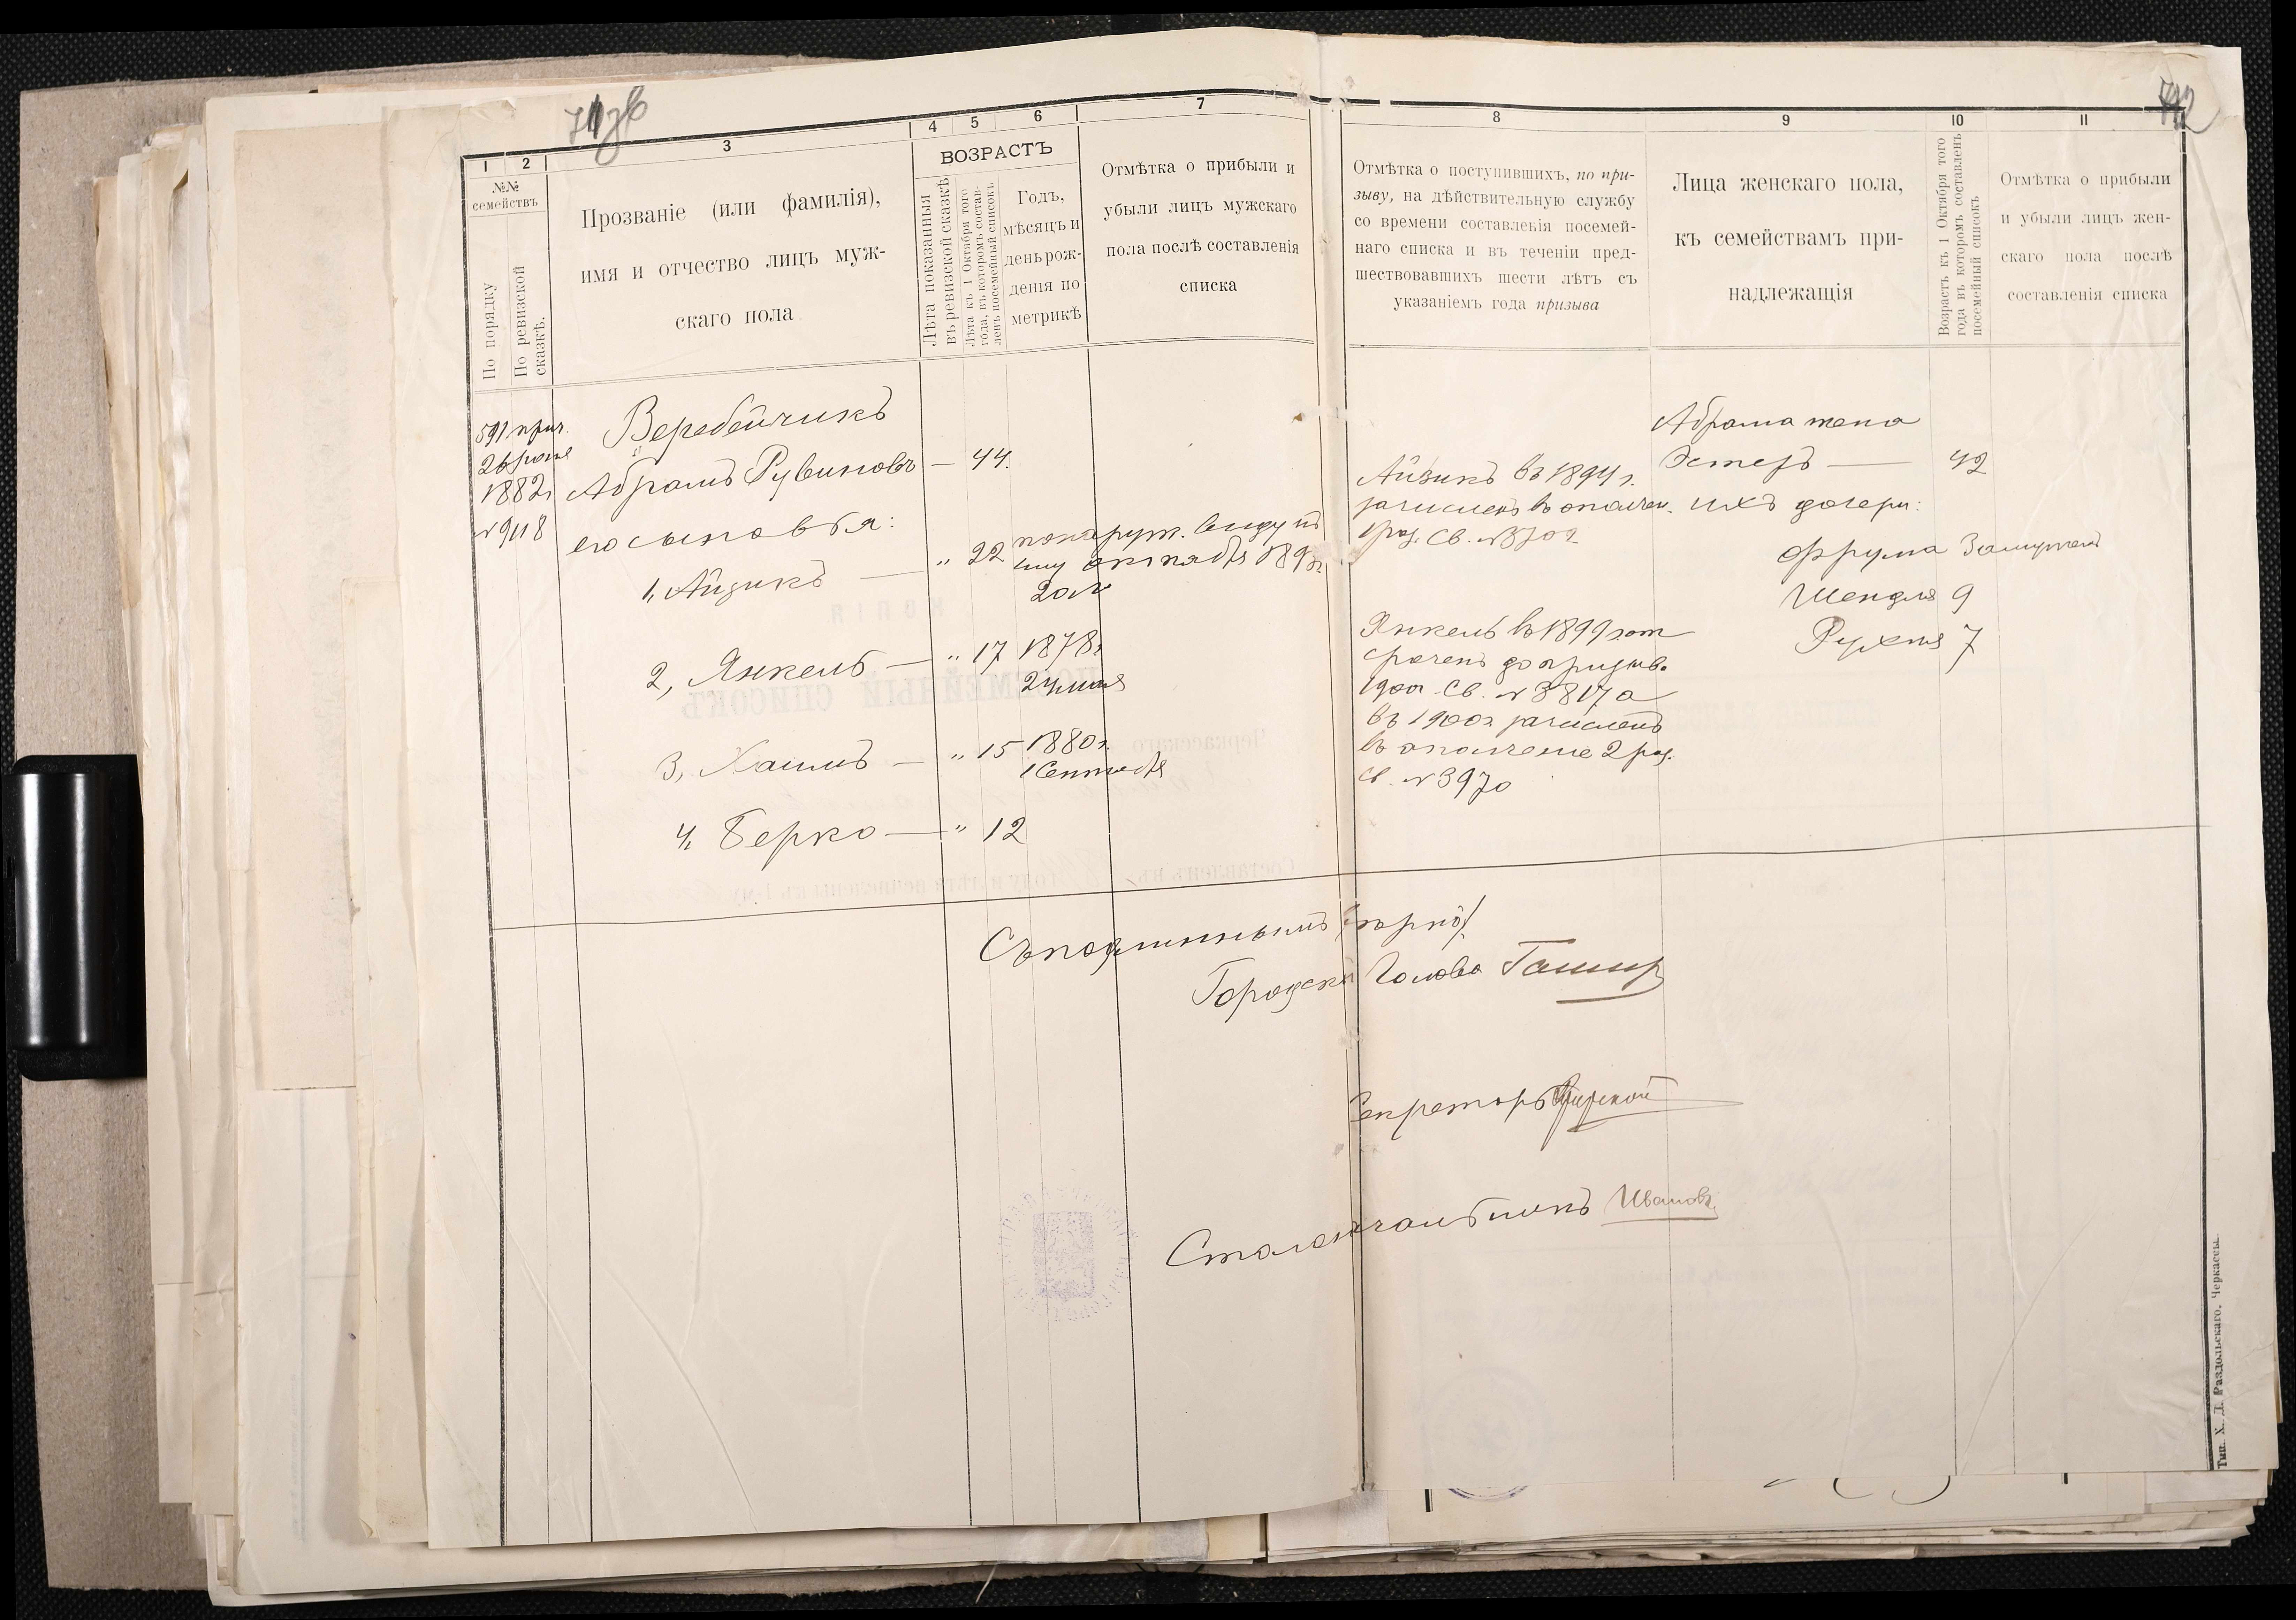 712
1
2
3
4
5
6
7
№№ семействъ
По порядку
По ревизской сказкѣ.
Прозваніе (или фамилія),
имя и отчество лицъ муж-
скаго пола
ВОЗРАСТЪ
Лѣта показанныя
въ ревизской сказкѣ
Лѣта къ 1 Октября того
года, въ которомъ состав-
ленъ посемейный списокъ
Годъ,
мѣсяцъ и
день рож-
денія по
метрикѣ
Отмѣтка о прибыли и
убыли лицъ мужскаго
пола послѣ составленія
списка
591 прич.
1882г
№ 9118
Веребейчикъ
Абрамъ Рувиновъ — 44.
его сыновья:
1, Айзикъ — " 22 по наруж. виду къ
2, Янкель — " 17 1878г
24 мая
3, Хаимъ — " 15 1880г.
1 Сентября
4, Берко — " 12
8
9
10
11
Отмѣтка о поступившихъ, по при-
зыву, на дѣйствительную службу
со времени составленія посемей-
наго списка и въ теченіи пред-
шествовавшихъ шести лѣтъ съ
указаніемъ года призыва
Лица женскаго пола,
къ семействамъ при-
надлежащія
Возрастъ къ 1 Октября того
года въ которомъ составленъ
посемейный списокъ
Отмѣтка о прибыли
и убыли лицъ жен-
скаго пола послѣ
составленія списка
Айзикъ въ 1894 г.
зачисленъ въ ополчен.
1 раз. Св. №
Янкель въ 1899 г от
сроченъ до призыва
1900г. Св. № 3817 а
въ 1900г зачисленъ
въ ополчение 2 раз.
св. № 3970
Абрама жена
Эстеръ — 42
ихъ дочери:
Фрума Замужемъ
Шендля 9
Рухля 7
Съ подлиннымъ вѣрно:
Городской Голова
Секретарь
Столоначальникъ Ивановъ
Тип. Х. Д. Раздольскаго, Черкассы.